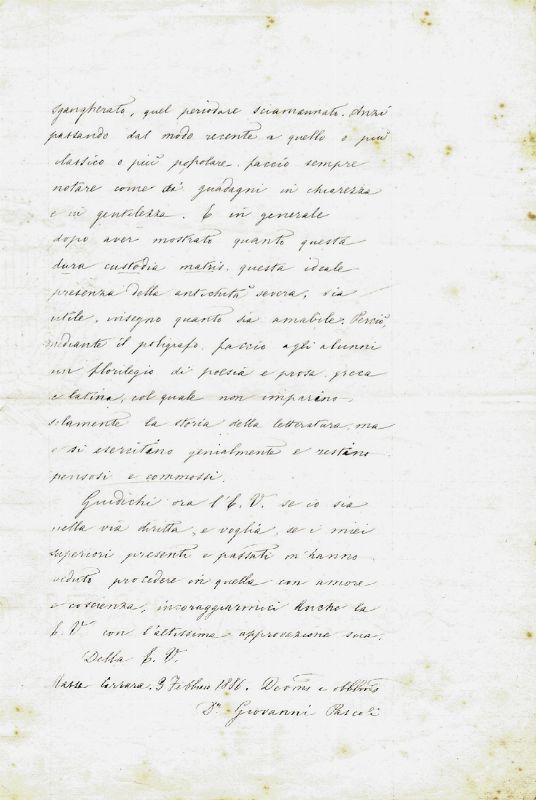 sgangherato, quel periodare sciamannato. Anzi
passando dal modo recente a quello o più
classico o più popolare, faccio sempre
notare come si guadagni in chiarezza
e in gentilezza. E in generale
dopo aver mostrato quanto questa
dura custodia matris, questa ideale
presenza della antichità severa, sia
utile, insegno quanto sia amabile. Perciò,
mediante il poligrafo, faccio agli alunni
un florilegio di poesia e prosa, greca
e latina, col quale non imparano
solamente la storia della letteratura, ma
e si esercitano genialmente e restano
pensosi e commossi.
Giudichi ora l'E. V. se io sia
nella via diritta, e voglia, se i miei
superiori presenti e passati m'hanno
veduto procedere in quella con amore
e coscienza, incoraggiarmici anche la
E. V. con l'altissima approvazione sua.
Della E. V.
Massa Carrara, 3 Febbraio 1886. Devmo e obblmo
Dr Giovanni Pascoli